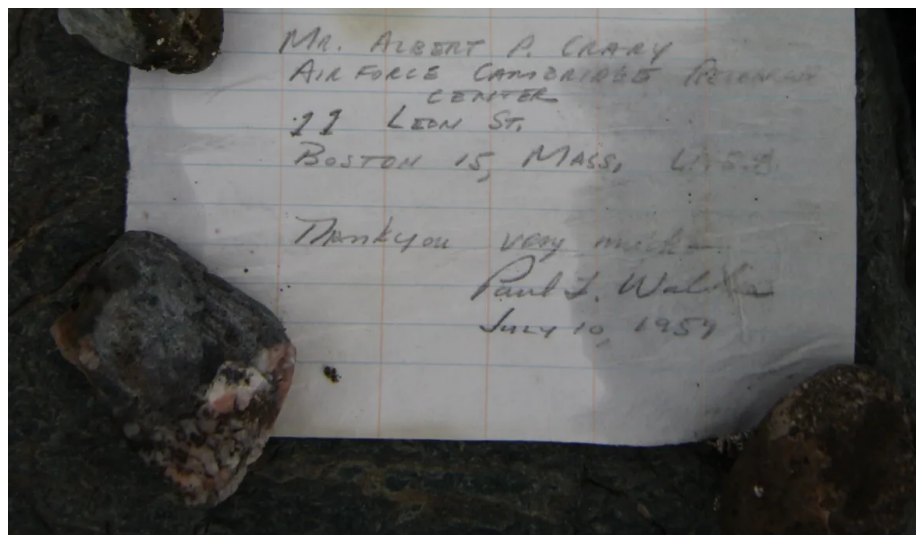 MR. ALBERT P. CRARY
AIR FORCE CAMBRIDGE RESEARCH
CENTER
11 LEON ST.
BOSTON 15, MASS, U.S.A.
Thankyou very much
Paul T. Walker
July 10, 1959